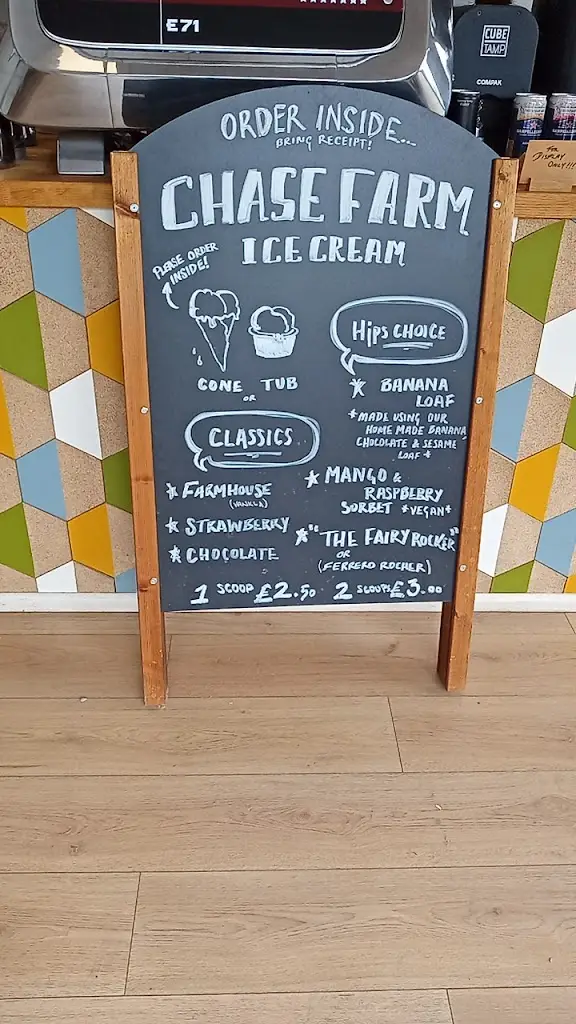 £71
CUBE
TAMP
COMPAK
FOR
DISPLAY
ONLY!!!
ORDER INSIDE...
BRING RECEIPT!
CHASE FARM
ICE CREAM
PLEASE ORDER
INSIDE!
CONE OR TUB
HiPS CHOICE
BANANA
LOAF
*MADE USING OUR
HOME MADE BANANA,
CHOCOLATE & SESAME
LOAF*
CLASSICS
FARMHOUSE
(VANILLA)
STRAWBERRY
CHOCOLATE
MANGO &
RASPBERRY
SORBET *VEGAN*
"THE FAIRY ROCKER"
OR
(FERRERO ROCHER)
1 SCOOP £2.50 2 SCOOPS £3.00